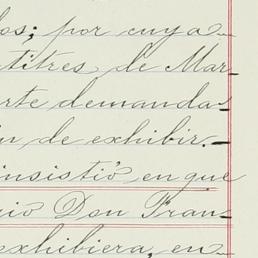 los; por cuya
titres de Mar-
rte demanda
in de exhibir.-
insistió en que
cio Don Fran-
exhibiera, en